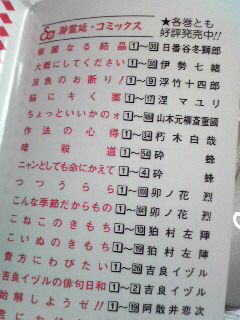 瀞霊廷・コミックス
★各巻とも
好評発売中!!
華麗なる結晶 1~35 日番谷冬獅郎
大概にしてください 1~30 伊勢七緒
双魚のお断り! 1~9 浮竹十四郎
脳にキく薬 1~17 涅マユリ
ちょっといいかのォ 1~108 山本元柳斎重國
作法の心得 1~34 朽木白哉
暗殺道 1~54 砕蜂
ニャンとしても命にかえて 1~4 砕蜂
つつうら 1~100 卯ノ花烈
こんな季節だからもの 1~164 卯ノ花烈
こねこのきもち 1~10 狛村左陣
こいぬのきもち 1~19 狛村左陣
貴方にわびたい 1~26 吉良イヅル
吉良イヅルの俳句日和 1~2 吉良イヅル
始解しようゼ!! 1~19 阿散井恋次